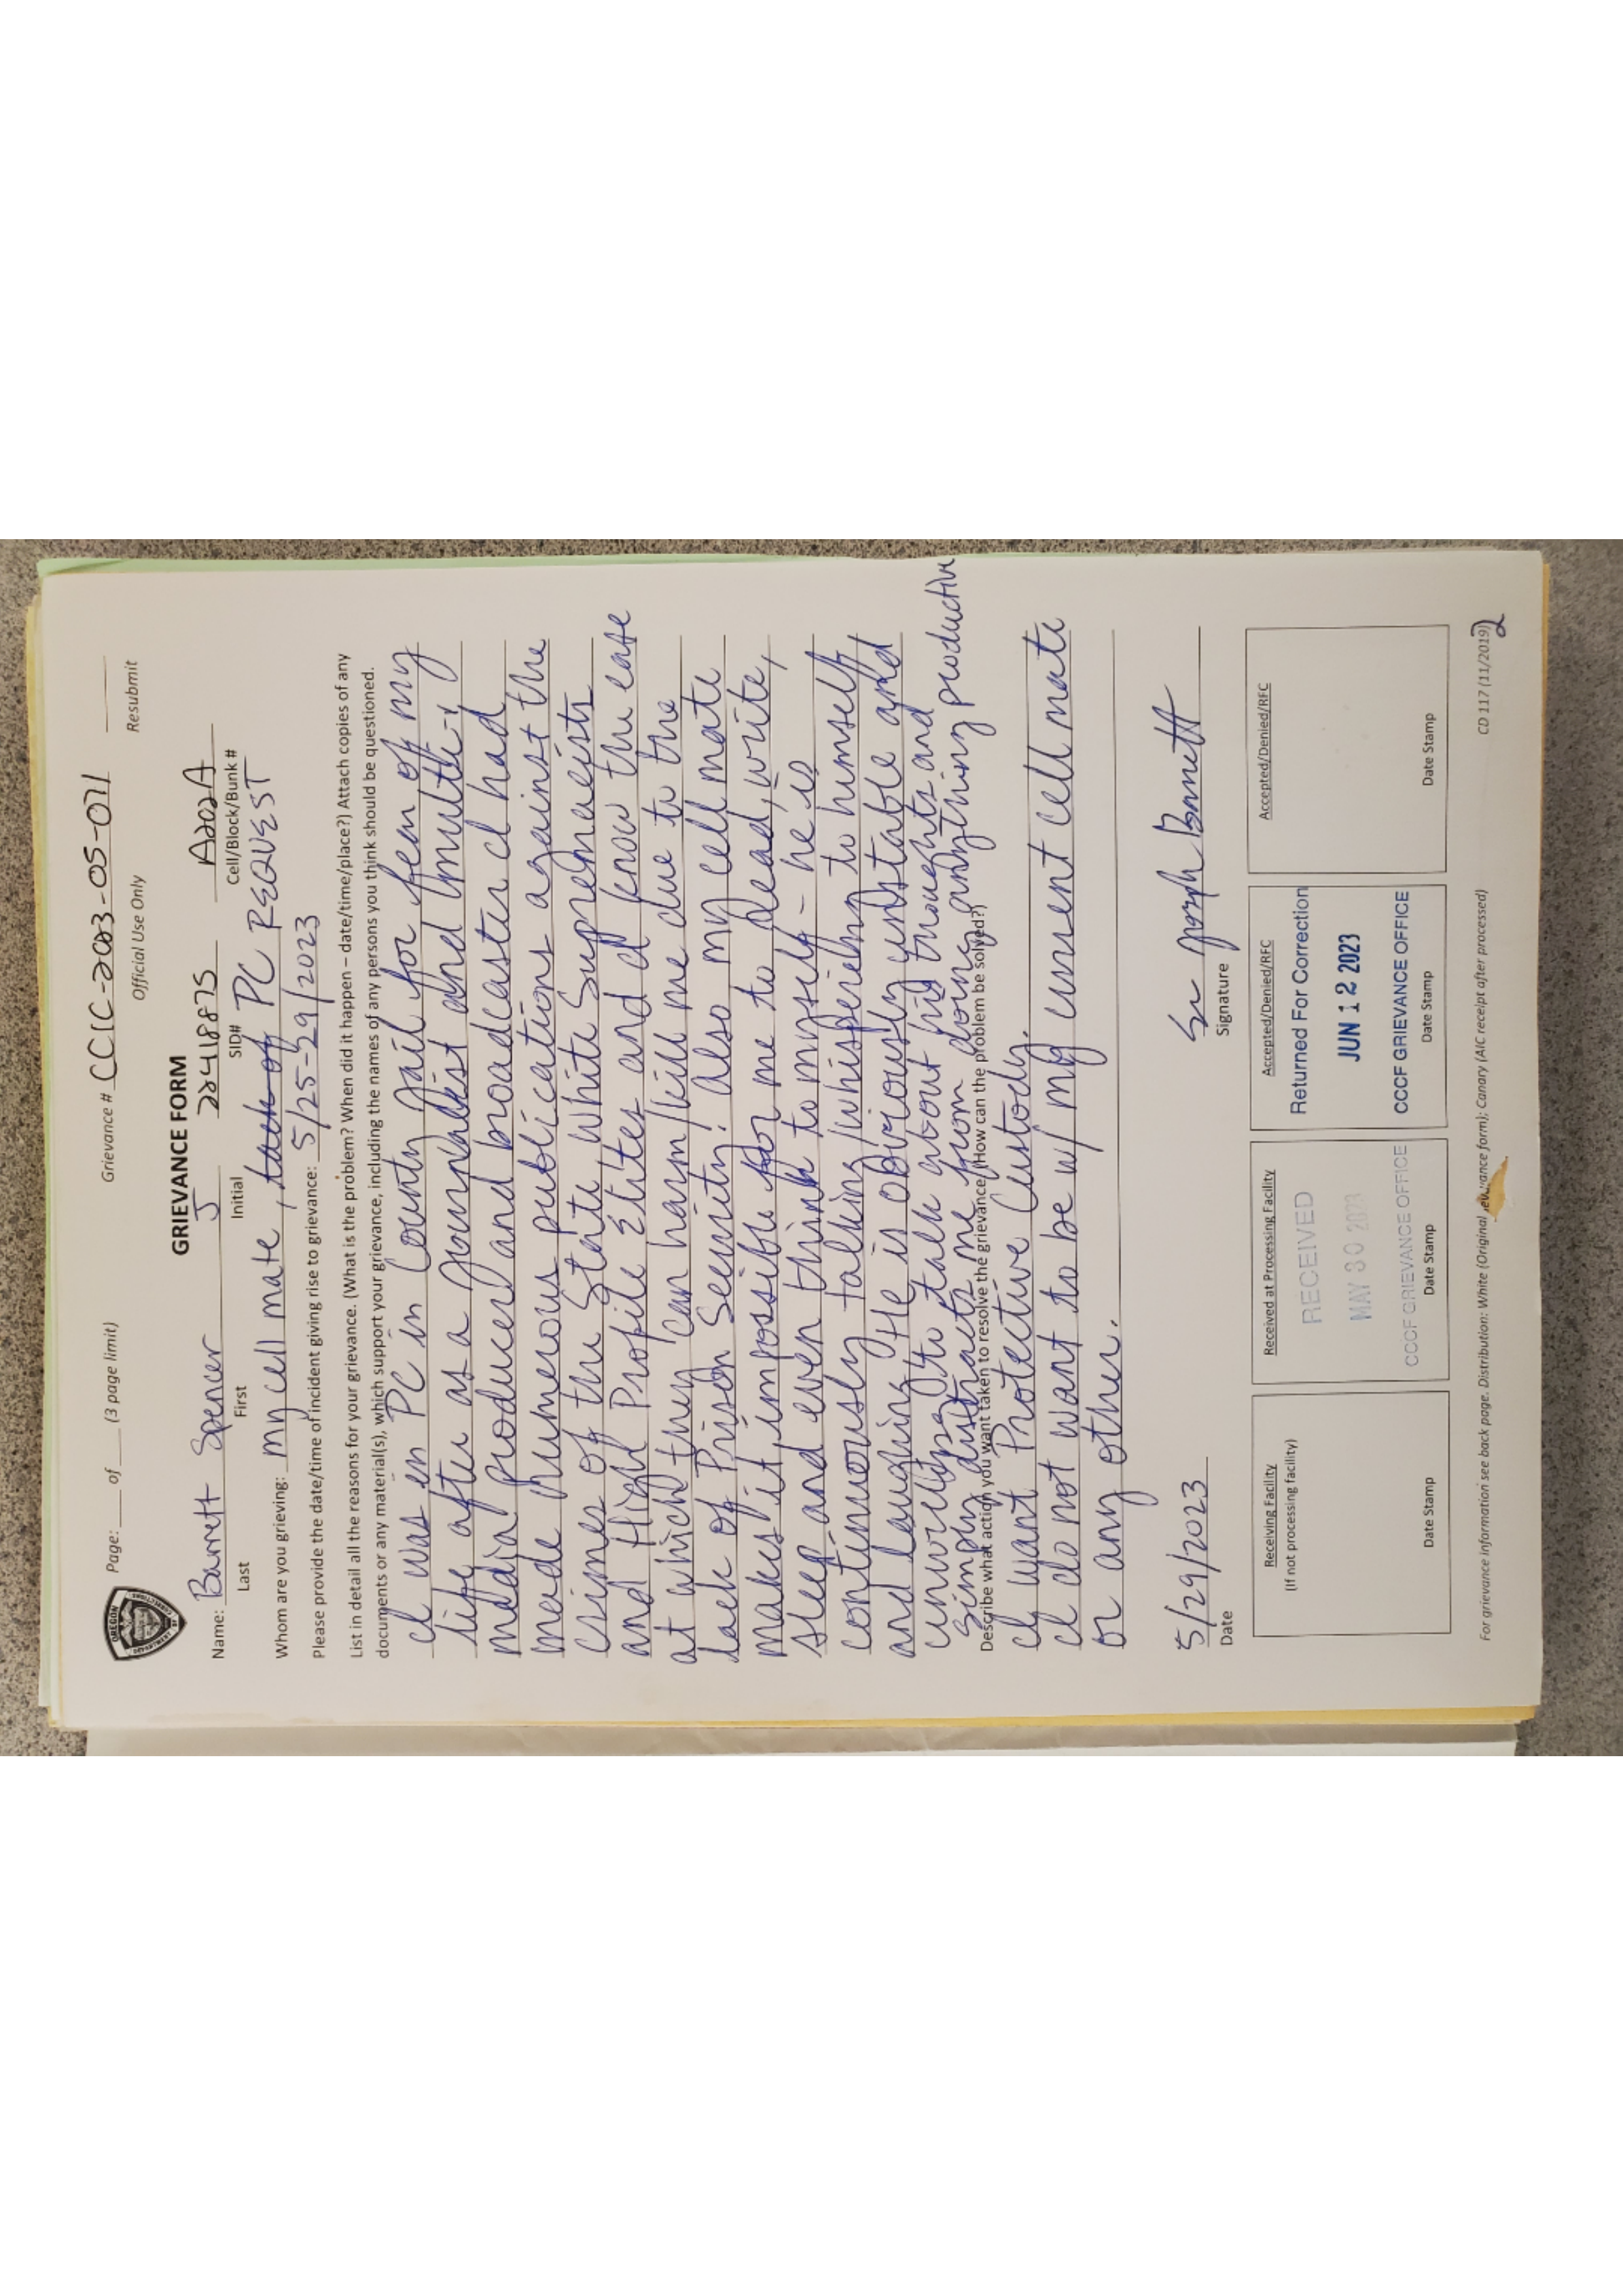 Page: ___ of ___ (3 page limit) Grievance # CCIC-2023-05-071
Official Use Only Resubmit
OREGON
GRIEVANCE FORM
Name: Barrett Spencer J 22418875 A202A
Last First Initial SID# Cell/Block/Bunk #
Whom are you grieving: my cell mate, lack of PC REQUEST
Please provide the date/time of incident giving rise to grievance: 5/25-29/2023
List in detail all the reasons for your grievance. (What is the problem? When did it happen – date/time/place?) Attach copies of any
documents or any material(s), which support your grievance, including the names of any persons you think should be questioned.
I was in PC in County Jail for fear of my
life after as a journalist and multi-
media producer and broadcaster I had
made numerous publications against the
crimes of the State White Supremacists
and High Profile Elites and I know the ease
at which they can harm/kill me due to the
lack of Prison Security! also my cell mate
makes it impossible for me to read, write,
sleep and even think to myself - he is
continuously talking/whispering to himself
and laughing. He is obviously unstable and
to talk about his thoughts and
simply distracts me from doing anything productive
Describe what action you want taken to resolve the grievance. (How can the problem be solved?)
I want Protective Custody.
I do not want to be w/ my current cell mate
or any other.
5/29/2023
Date Signature
Receiving Facility
(If not processing facility)
Date Stamp
Received at Processing Facility
RECEIVED
MAY 30 2023
CCCF GRIEVANCE OFFICE
Date Stamp
Accepted/Denied/RFC
Returned For Correction
JUN 12 2023
CCCF GRIEVANCE OFFICE
Date Stamp
Accepted/Denied/RFC
Date Stamp
For grievance information see back page. Distribution: White (Original grievance form); Canary (AIC receipt after processed) CD 117 (11/2019)
2